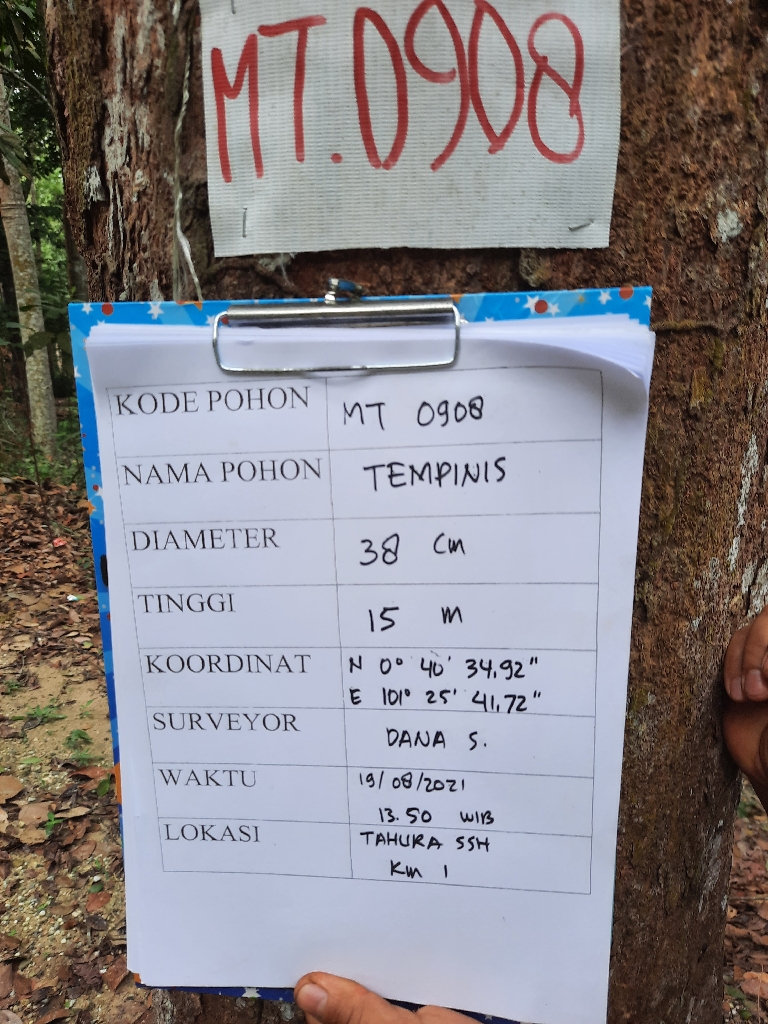 MT.0908
KODE POHON MT 0908
NAMA POHON TEMPINIS
DIAMETER 38 Cm
TINGGI 15 m
KOORDINAT N 0° 40' 34,92"
E 101° 25' 41,72"
SURVEYOR DANA S.
WAKTU 19/08/2021
13.50 WIB
LOKASI TAHURA SSH
Km 1